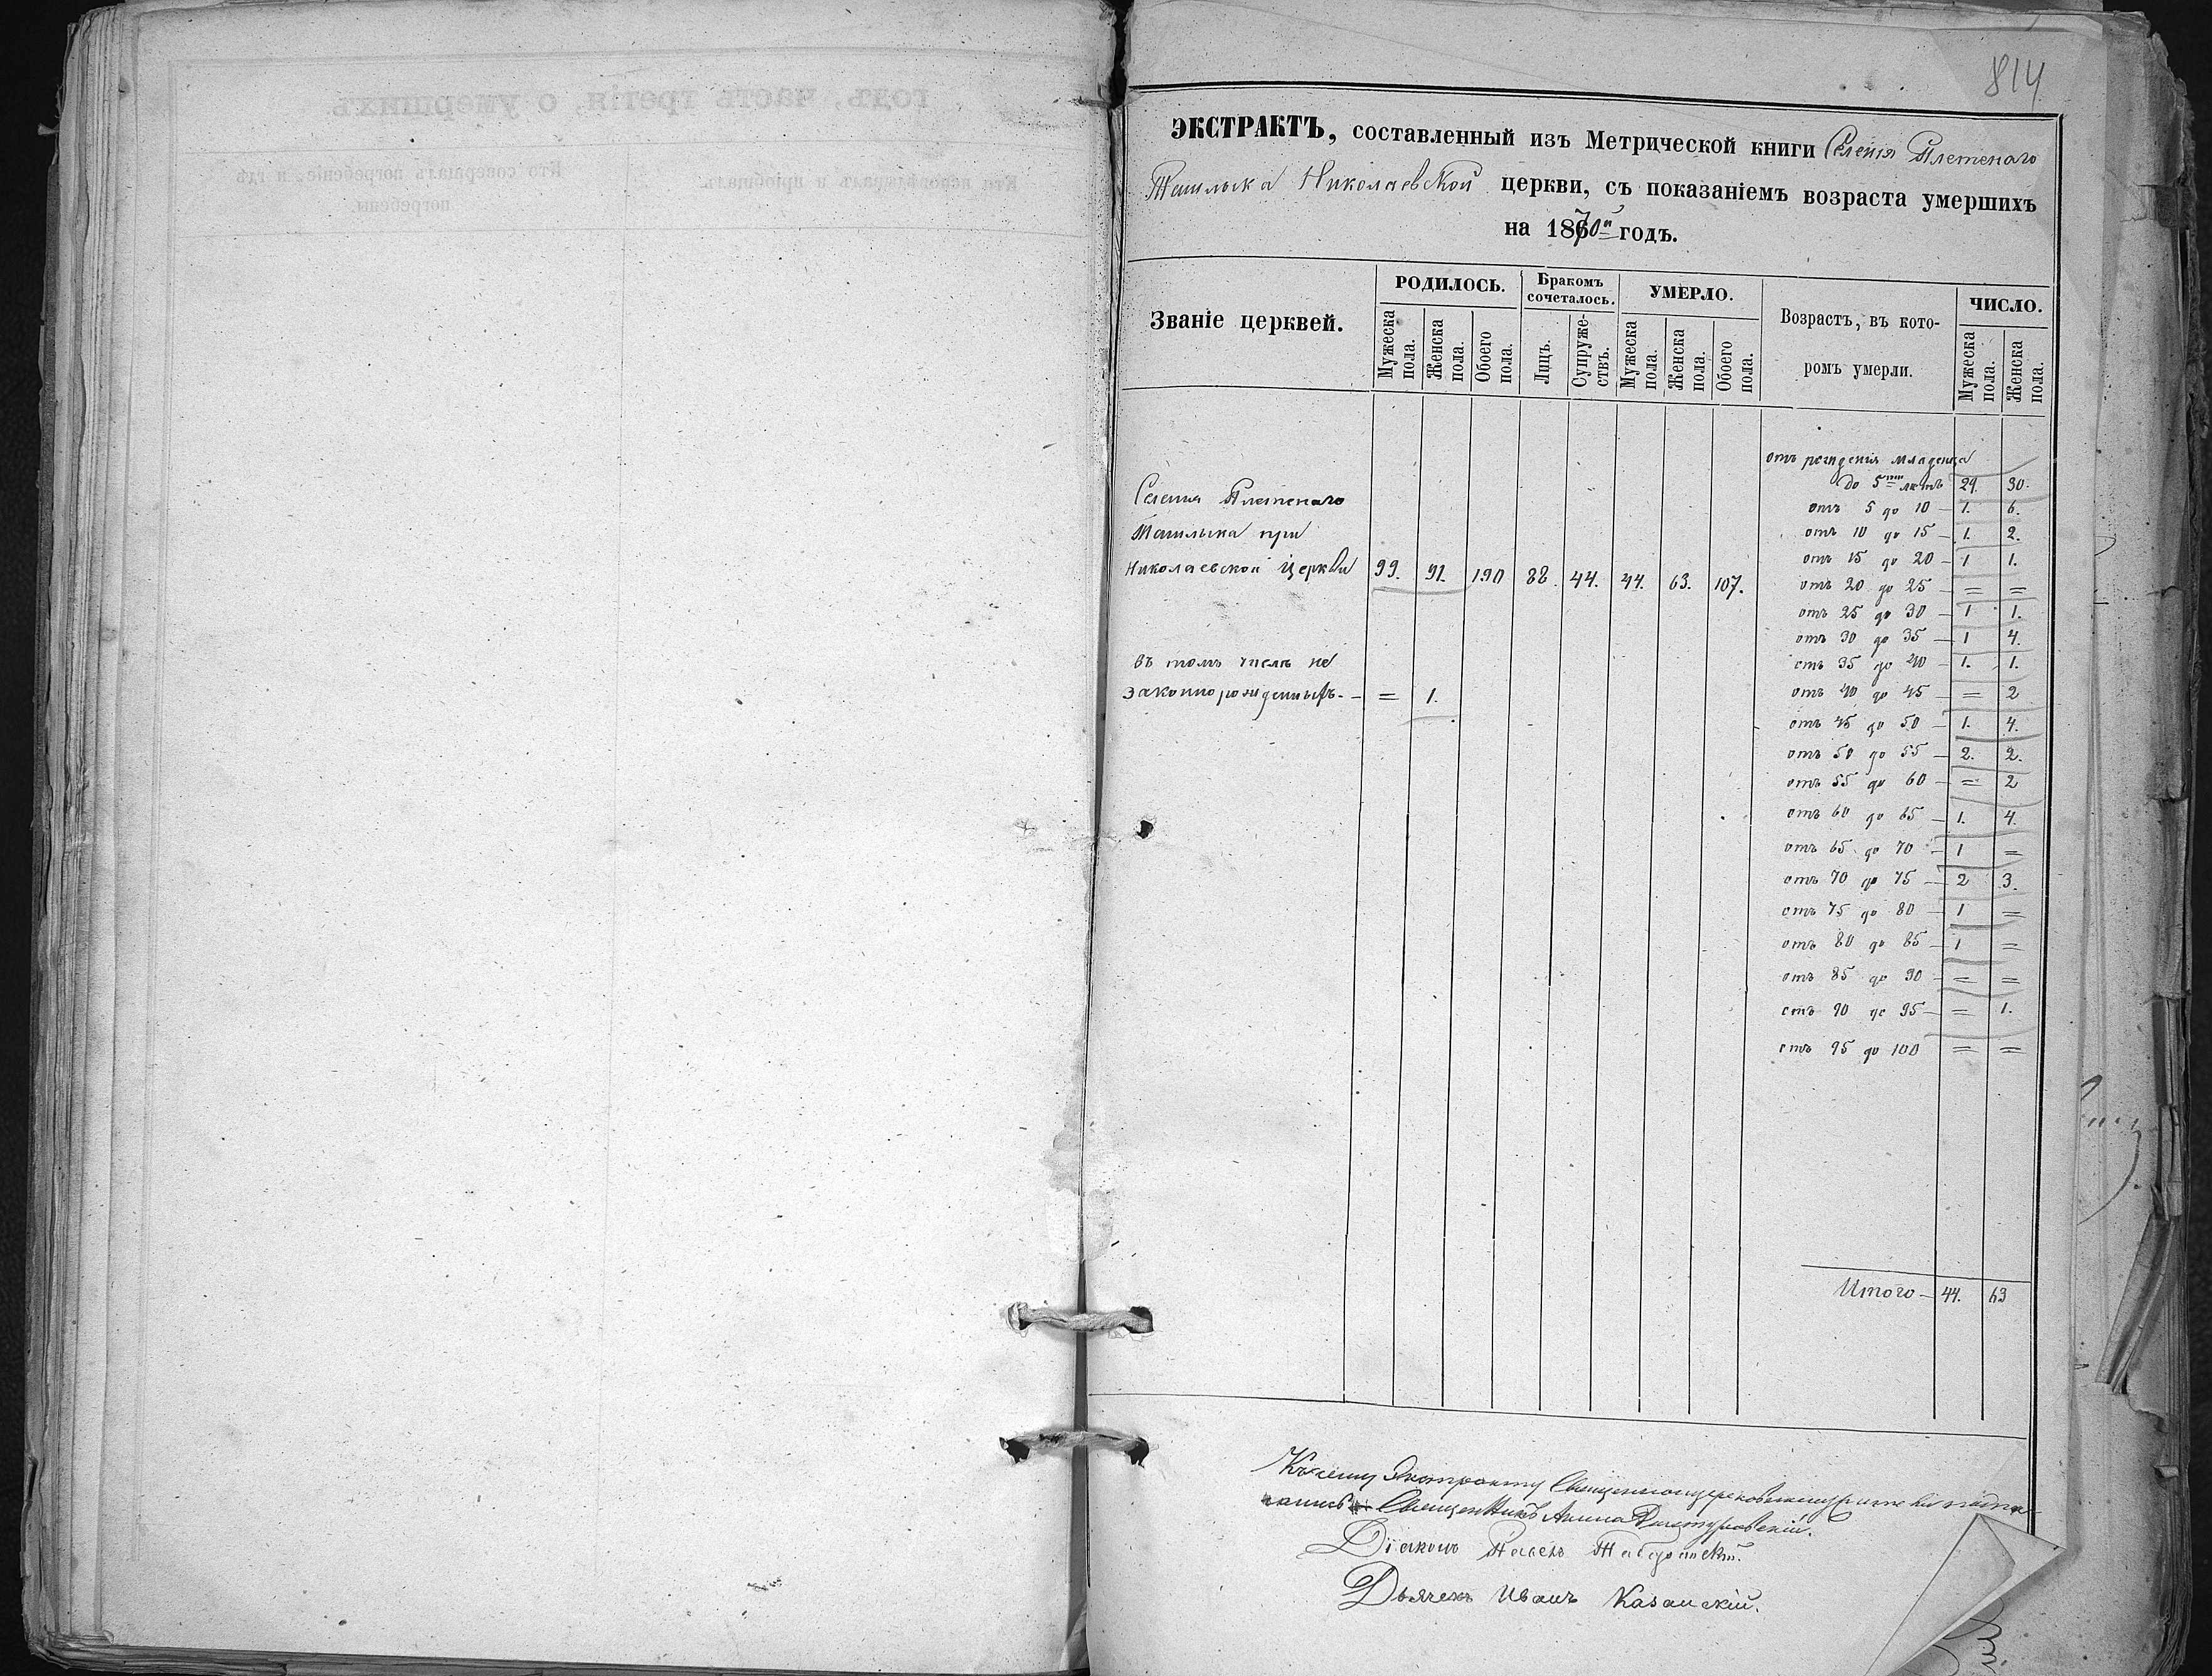 814
ЭКСТРАКТЪ, составленный изъ Метрической книги Селенія Плетенаго
Ташлыка Николаевской церкви, съ показаніемъ возраста умершихъ
на 1870й годъ.
Званіе церквей.
РОДИЛОСЬ.
Бракомъ
сочеталось.
УМЕРЛО.
Возрастъ, въ кото-
ромъ умерли.
ЧИСЛО.
Мужеска
пола.
Женска
пола.
Обоего
пола.
Лицъ.
Супруже-
ствъ.
Мужеска
пола.
Женска
пола.
Обоего
пола.
Мужеска
пола.
Женска
пола.
Селенія Плетенаго
Ташлыка при
Николаевской Церкви 99. 91. 190 88. 44. 44. 63. 107.
въ томъ числѣ не
законнорожденныхъ - = 1.
отъ рожденія младенца
до 5ти лѣтъ 29. 30.
отъ 5 до 10 - 1. 6.
отъ 10 до 15 - 1. 2.
отъ 15 до 20 - 1 1.
отъ 20 до 25 - = =
отъ 25 до 30 - 1 1.
отъ 30 до 35 - 1 4.
отъ 35 до 40 - 1. 1.
отъ 40 до 45 - = 2
отъ 45 до 50 - 1. 4.
отъ 50 до 55 - 2. 2.
отъ 55 до 60 - = 2
отъ 60 до 65 - 1. 4.
отъ 65 до 70 - 1 =
отъ 70 до 75 - 2 3.
отъ 75 до 80 - 1 =
отъ 80 до 85 - 1 =
отъ 85 до 90 - = =
отъ 90 до 95 - = 1.
отъ 95 до 100 = =
Итого - 44. 63
Къ сему Экстракту
Священникъ
Діаконъ Павелъ
Дьячекъ Иванъ Казанскій.